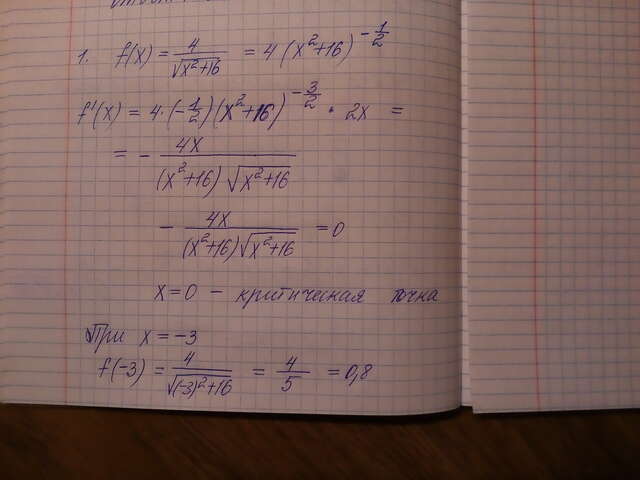 1. f(x) = 4/√(x²+16) = 4(x²+16)^(-1/2)
f'(x) = 4·(-1/2)(x²+16)^(-3/2) · 2x =
= - 4x/((x²+16)√(x²+16))
- 4x/((x²+16)√(x²+16)) = 0
x=0 - критическая точка
При x = -3
f(-3) = 4/√((-3)²+16) = 4/5 = 0,8